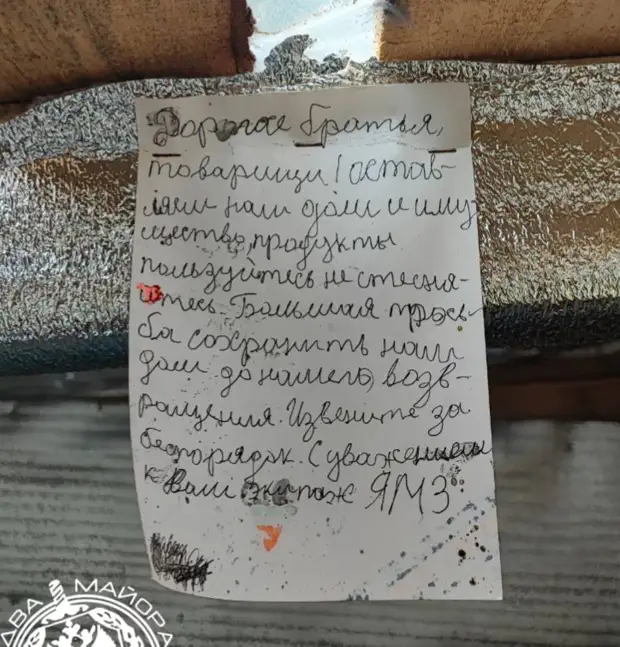 Дорогие братья,
товарищи! остав-
ляем наш дом и иму
щество, продукты
пользуйтесь не стесня-
йтесь. Большая прось-
ба сохранить наш
дом до нашего возв-
ращения. Извените за
беспорядок. С уважением
к Вам экипаж ЯМЗ
ДВА МАЙОРА